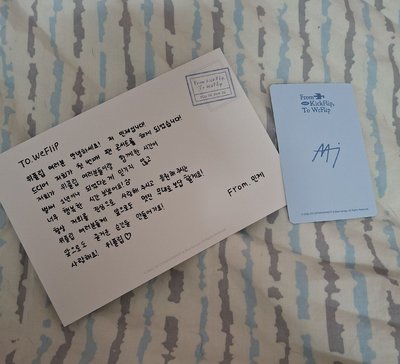 From KickFlip,
To WeFlip
TO. WeFlip
위플립 여러분 안녕하세요! 저 민제입니다
드디어 저희가 첫 번째 팬 콘서트를 하게 되었습니다!
저희가 위플립 여러분들이랑 함께한 시간이
벌써 1년이나 되었다는게 믿기지 않고
너무 행복한 시간 보냈어요!
항상 저희를 믿음으로 사랑해 주시고 응원해 주신
위플립 여러분들께 앞으로도 멋진 무대로 보답 할게요!
앞으로도 즐거운 순간들 만들어가요!
사랑해요! 위플립♡
From. 민제
From
KickFlip,
To WeFlip